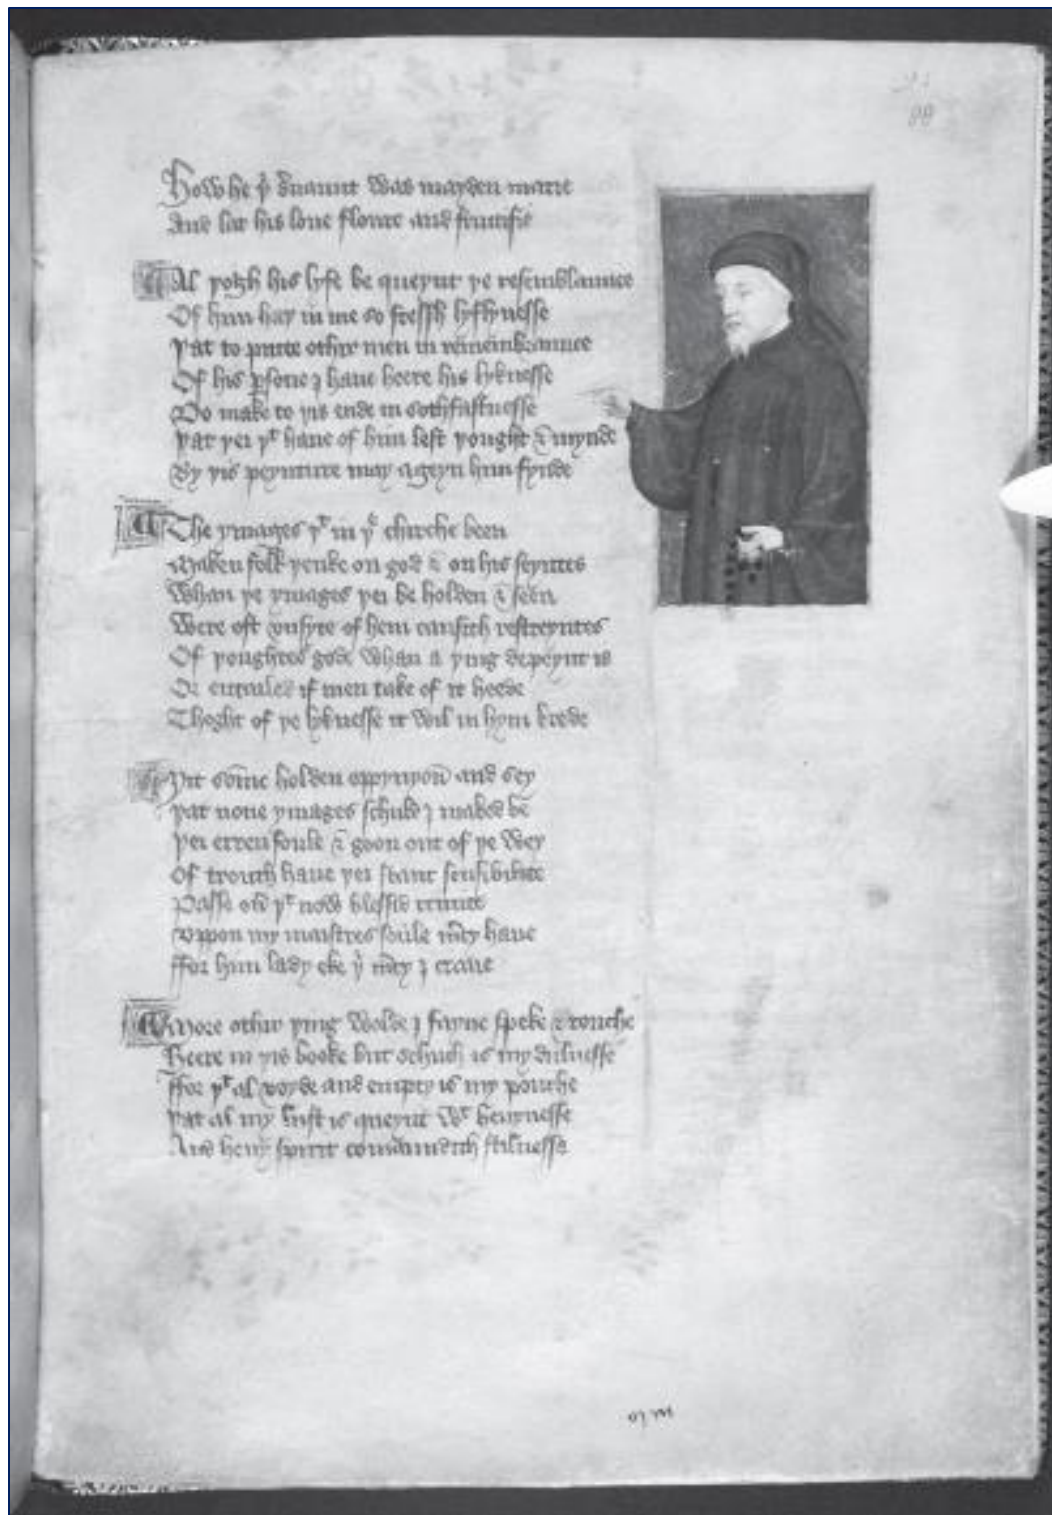 88
How he þͥ s̉uaunt was mayden marie
And lat his loue floure and fructifie
Al þogh his lyfe be queynt þe resemblaunce
Of him haþ in me so fressh lyflynesse
Þat to putte othir men in remembraunce
Of his ꝑsone I haue heere his lyknesse
Do make to þis ende in sothfastnesse
Þat þei þͭ haue of him lest þought & mynde
By þis peynture may ageyn him fynde
The ymages þͭ in þͤ chirche been
Maken folk þenke on god & on his seyntes
Whan þe ymages þei be holden & seen
Were oft vnsyte of hem causith restreyntes
Of þoughtes gode whan a þing depeynt is
Or entailed if men take of it heede
Thoght of þe lyknesse it wil in hym brede
Yit some holden oppynyon̄ and sey
Þat none ymages schuld I maked be
Þei erren foule & goon out of þe wey
Of trouth haue þei scant sensibilite
Passe oủ þͭ now blessid trinite
Vppon my maistres soule m̉cy haue
ffor him lady eke þͥ m̉cy I craue
More othir þing wolde I fayne speke & touche
Heere in þis booke but schuch is my dulnesse
ffor þͭ al voyde and empty is my pouche
Þat al my lust is queynt wͭ heuynesse
And heuy spirit comaundith stilnesse